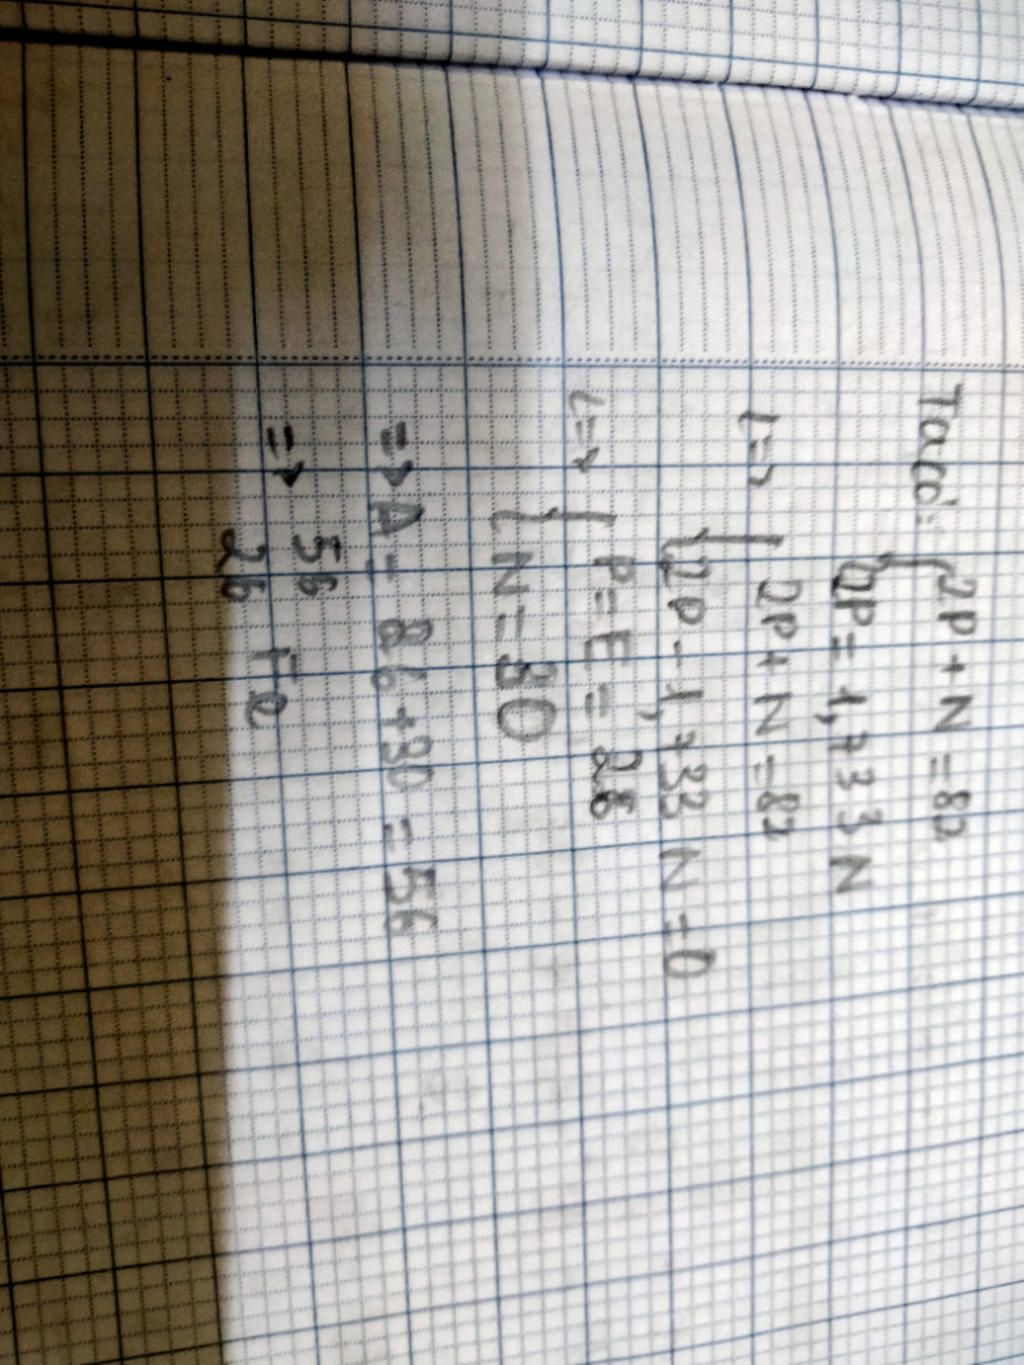 Ta có: { 2P + N = 82
2P = 1,733N
<=> { 2P + N = 82
2P - 1,733N = 0
<=> { P = E = 26
N = 30
=> A = 26 + 30 = 56
=> 56
26 Fe